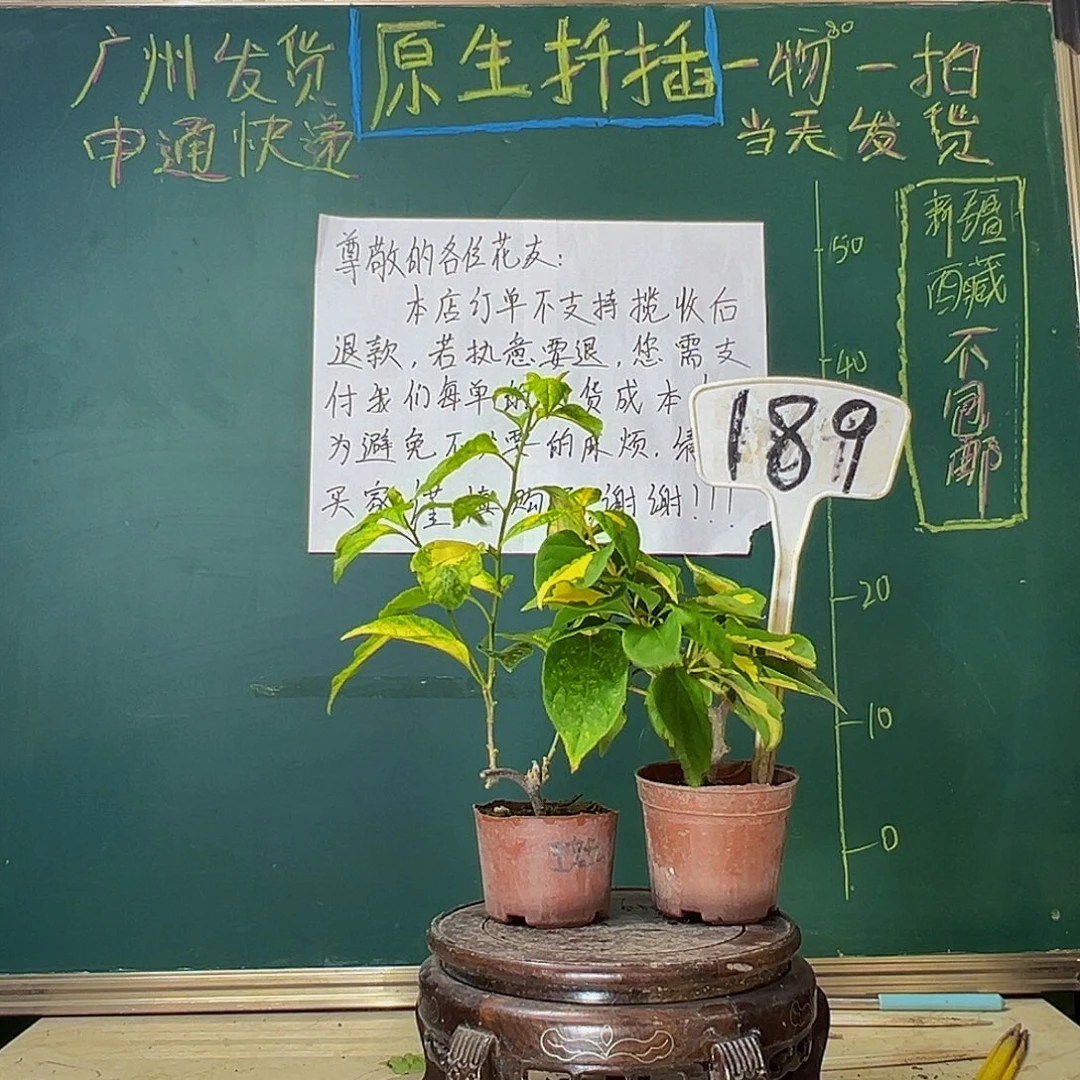 广州发货
原生扦插
一物一拍
80
申通快递
当天发货
尊敬的各位花友:
本店订单不支持揽收后
退款,若执意要退,您需支
付我们每单的 货成本
为避免不必要的麻烦.
买家谨慎购 谢谢!!!
189
新疆
西藏
不
包
邮
50
40
20
10
0